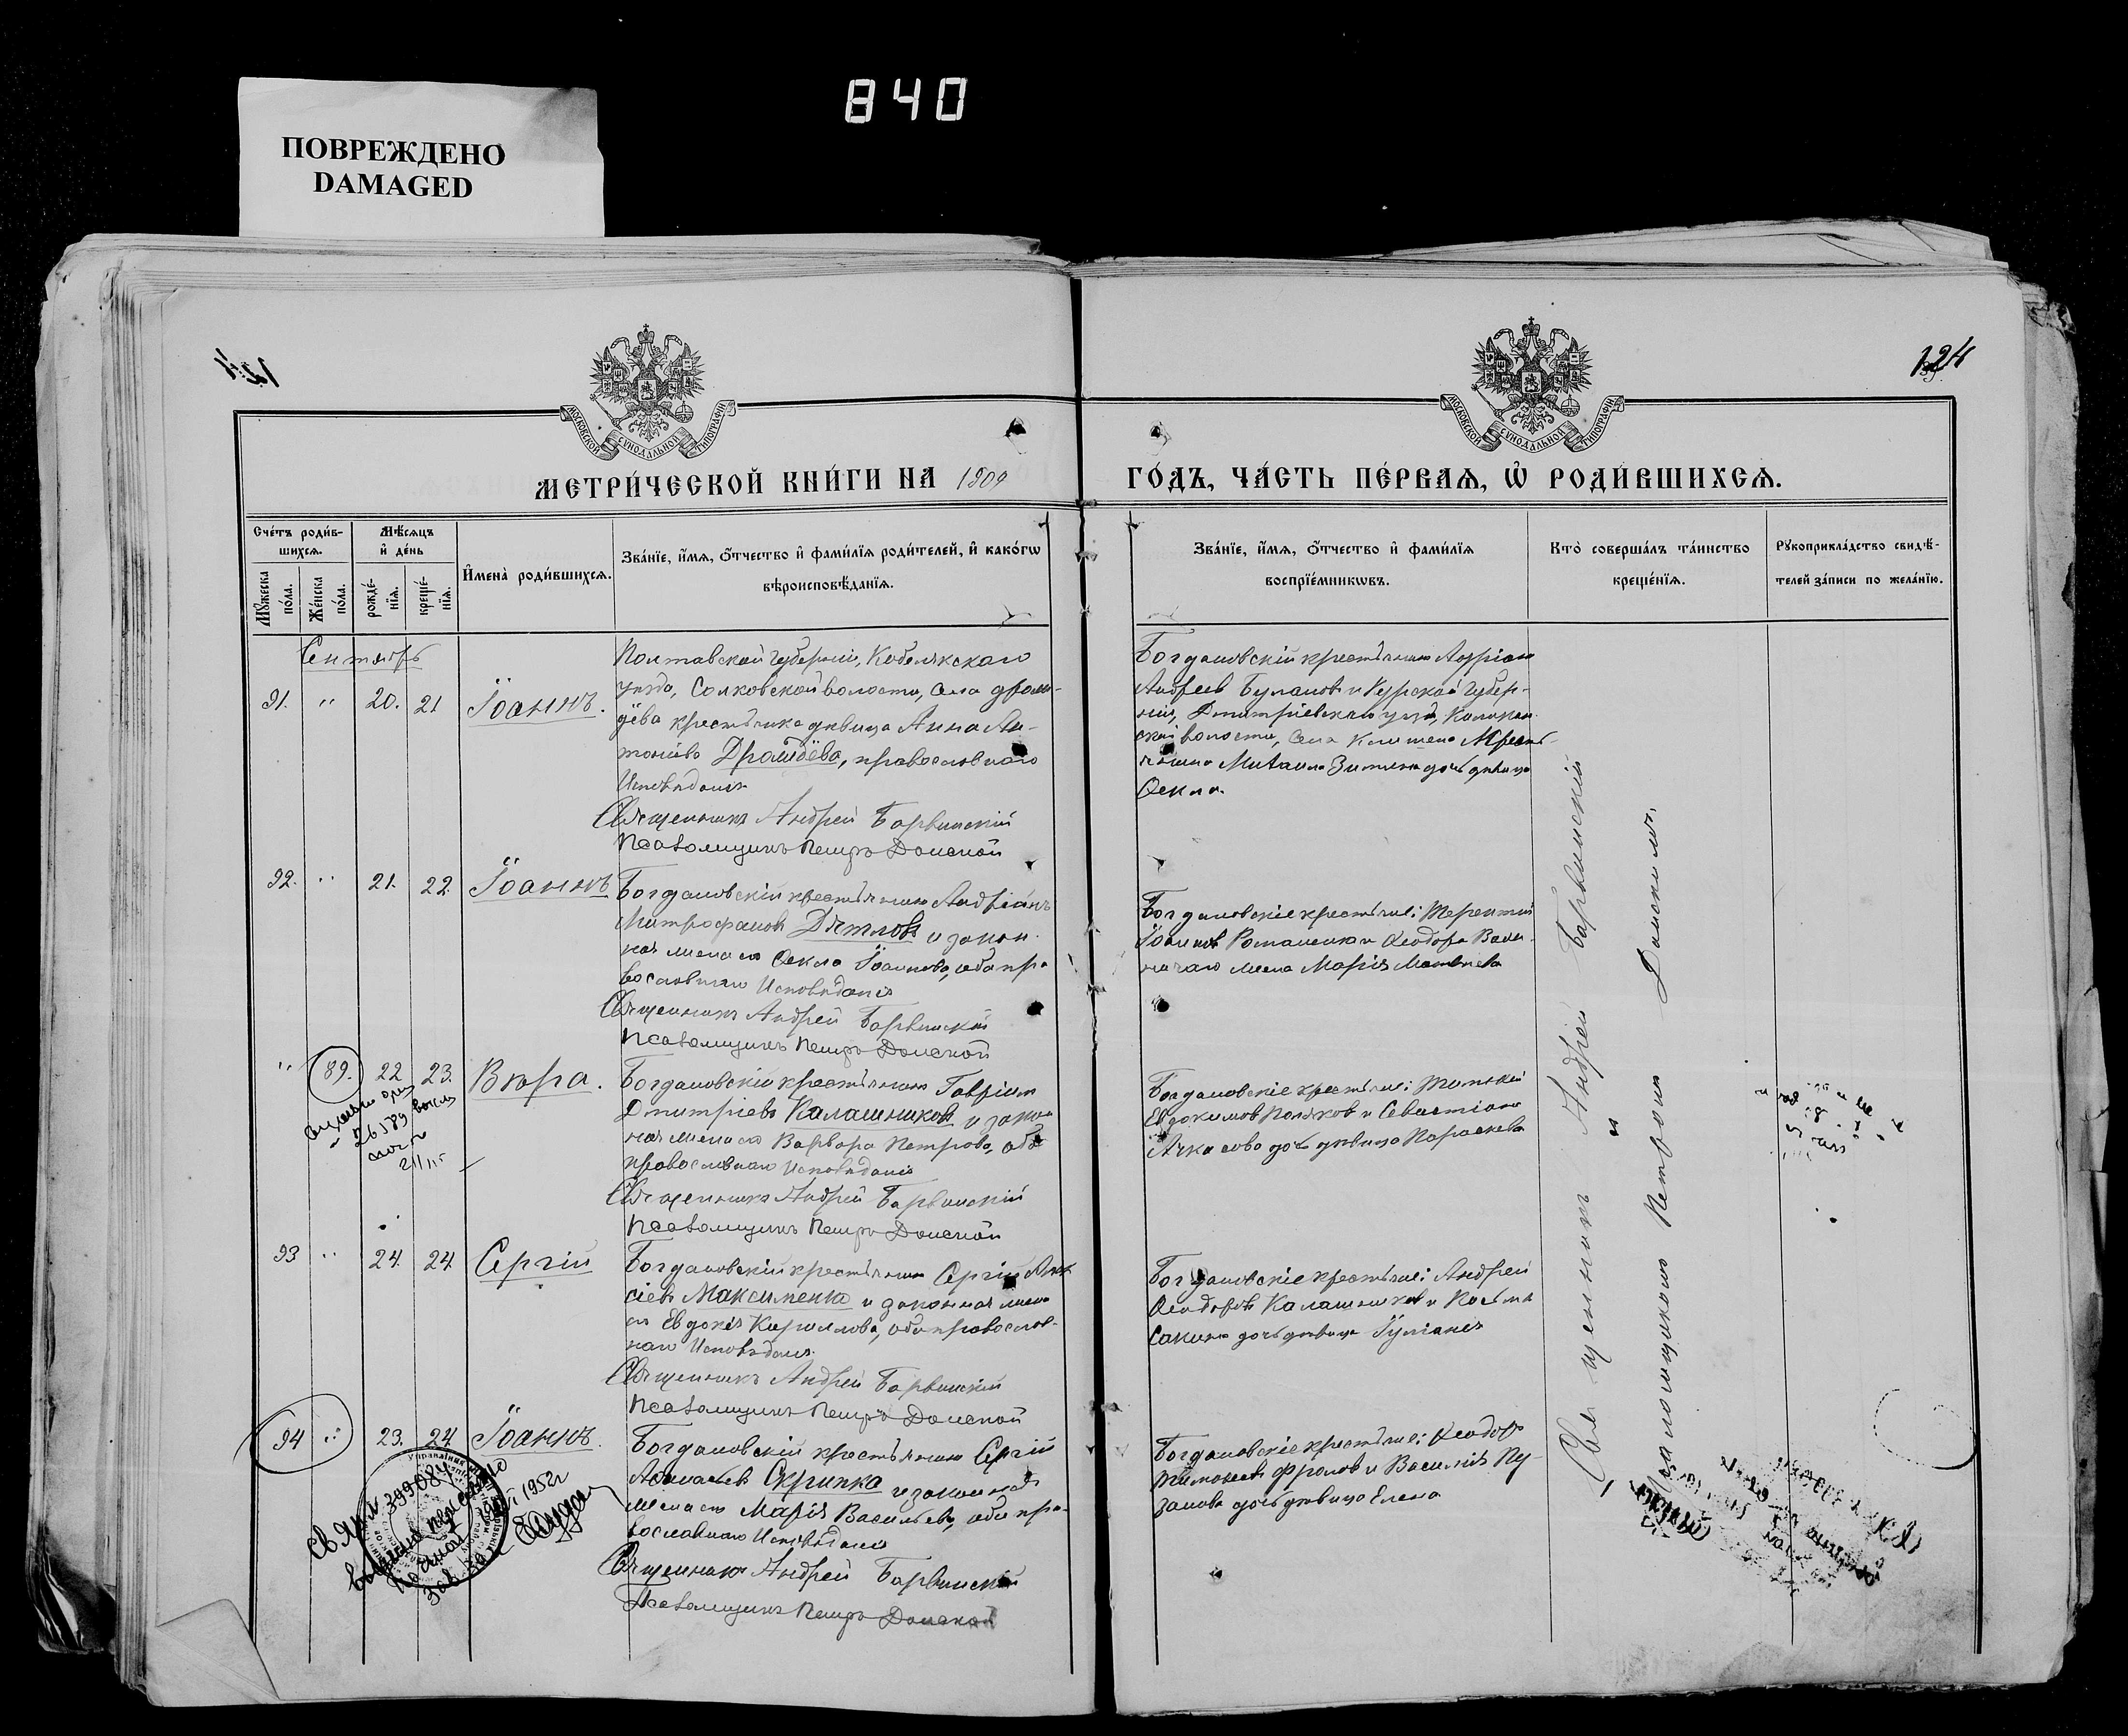 840
ПОВРЕЖДЕНО
DAMAGED
124
124
МОСКОВСКОЙ СУНОДАЛЬНОЙ ТИПОГРАФІИ
МОСКОВСКОЙ СУНОДАЛЬНОЙ ТИПОГРАФІИ
МЕТРИ́ЧЕСКОЙ КНИ́ГИ НА 1909
ГО́ДЪ, ЧА́СТЬ ПЕ́РВАЯ, Ѡ҆ РОДИ́ВШИХСЯ.
Сче́тъ роди́в-
шихся.
Мѣ́сяцъ
и҆ де́нь
Мꙋ́жеска
по́ла.
Же́нска
по́ла.
рожде́-
нія.
креще́-
нія.
И҆мена̀ роди́вшихся.
Зва́нїе, и҆́мя, ѻ҆́тчество и҆ фами́лїя роди́телей, и҆ како́гѡ
вѣроисповѣ́данїя.
Зва́нїе, и҆́мя, ѻ҆́тчество и҆ фами́лїя
воспрїе́мникѡвъ.
Кто̀ соверша́лъ та́инство
креще́нїя.
Рꙋкоприкла́дство свидѣ́-
телей за́писи по жела́нїю.
Сентябрь
91. " 20. 21 Іоаннъ.
Полтавской губерніи, Кобелякскаго
уезда, Соколовской волости, села
крестьянка девица Анна Ан-
тонова Драндѣева, православнаго
Исповѣданія
Священникъ Андрей Барвинскій
Псаломщикъ Петръ Донской
Богдановскій крестьянинъ Адріанъ
Андреев Буланов и Курской Губер-
ніи, Дмитріевскаго уезда,
ской волости, села крестья-
нина Михаила дочь девица
Ѳекла.
92. " 21. 22. Іоаннъ
Богдановскій крестьянинъ Андріанъ
Митрофановъ Дятловъ и закон-
ная жена его Ѳекла Іоаннова, оба пра-
вославнаго Исповѣданія
Священникъ Андрей Барвинскій
Псаломщикъ Петръ Донской
Богдановскіе крестьяне: Терентій
Іоаннов Романенко и Ѳеодора
жена Марія Матвеева
" 89. 22 23. Вѣра.
Богдановскій крестьянинъ Гавріилъ
Дмитріевъ Калашниковъ и закон-
ная жена его Варвара Петрова, оба
православнаго Исповѣданія
Священникъ Андрей Барвинскій
Псаломщикъ Петръ Донской
Богдановскіе крестьяне: Тимофей
Евдокимов Поляков и Севастіана
Ачкасова дочь девица Параскева
93 " 24. 24. Сергій
Богдановскій крестьянинъ Сергій Алек-
сіевъ Максименко и законная жена
его Евдокія Кириллова, оба православ-
наго Исповѣданія.
Священникъ Андрей Барвинскій
Псаломщикъ Петръ Донской
Богдановскіе крестьяне: Андрей
Ѳеодоровъ Калашников и Косьмы
Сакина дочь девица Іуліанія
94 " 23. 24. Іоаннъ.
Богдановскій крестьянинъ Сергій
Аѳанасьевъ Скрипка и законная
жена его Марія Васильева, оба пра-
вославнаго Исповѣданія
Священникъ Андрей Барвинскій
Псаломщикъ Петръ Донской
Богдановскіе крестьяне: Ѳеодор
Тимофеевъ Фролов и Василія Пу-
занова дочь девица Елена
Священникъ Андрей Барвинскій
и
Псаломщикомъ Петромъ Донскимъ.
399084
1952г